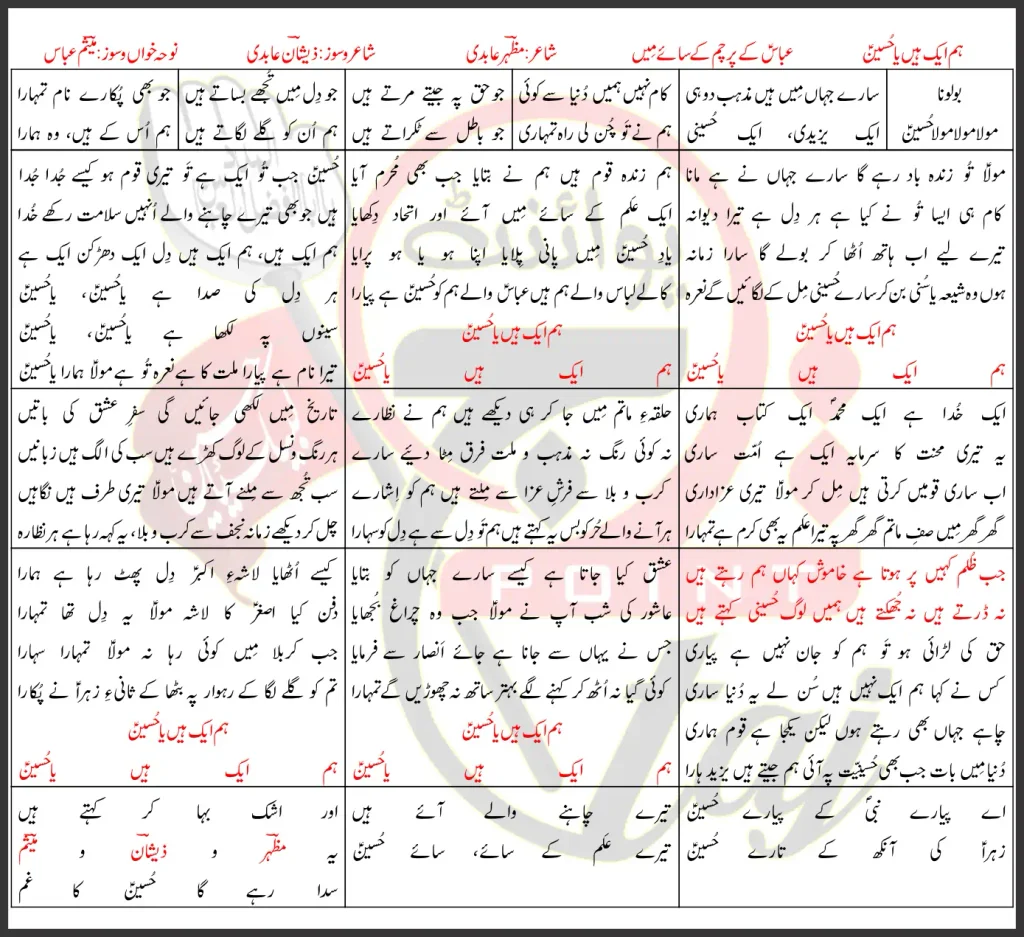 ہم ایک ہیں یا حُسینؑ عباسؑ کے پرچم کے سائے مِیں شاعر: مظہؔر عابدی شاعر و سوز: ذیشاؔن عابدی نوحہ خواں و سوز: میثؔم عباس
بولونا
مولا مولا مولا حُسینؑ
سارے جہاں مِیں ہیں مذہب دو ہی
ایک یزیدی، ایک حُسینی
کام نہیں ہمیں دُنیا سے کوئی
ہم نے تَو چُن لی راہ تمہاری
جو حق پہ جیتے مرتے ہیں
جو باطل سے ٹکراتے ہیں
جو دِل مِیں تُجھے بساتے ہیں
ہم اُن کو گلے لگاتے ہیں
جو بھی پُکارے نام تمہارا
ہم اُس کے ہیں، وہ ہمارا
مولاؑ تُو زندہ باد رہے گا سارے جہاں نے ہے مانا
کام ہی ایسا تُو نے کیا ہے ہر دِل ہے تیرا دیوانہ
تیرے لیے اب ہاتھ اُٹھا کر بولے گا سارا زمانہ
ہوں وہ شیعہ یا سُنی بن کر سارے حُسینی مِل کے لگائیں گے نعرہ
ہم ایک ہیں یا حُسینؑ
ہم ایک ہیں یا حُسینؑ
ہم زندہ قوم ہیں ہم نے بتایا جب بھی مُحرم آیا
ایک عَلم کے سائے مِیں آئے اور اتحاد دِکھایا
یادِ حُسینؑ مِیں پانی پِلایا اپنا ہو یا ہو پرایا
کالے لباس والے ہم ہیں عباسؑ والے ہم کو حُسینؑ ہے پیارا
ہم ایک ہیں یا حُسینؑ
ہم ایک ہیں یا حُسینؑ
حُسینؑ جب تُو ایک ہے تَو تیری قوم ہو کیسے جُدا جُدا
ہیں جو بھی تیرے چاہنے والے اُنہیں سلامت رکھے خُدا
ہم ایک ہیں، ہم ایک ہیں دِل ایک دھڑکن ایک ہے
ہر دِل کی صدا ہے یا حُسینؑ، یا حُسینؑ
سینوں پہ لکھا ہے یا حُسینؑ، یا حُسینؑ
تیرا نام ہے پیارا ملت کا ہے نعرہ تُو ہے مولا ہمارا یا حُسینؑ
ایک خُدا ہے ایک محمدؐ ایک کتاب ہماری
یہ تیری محنت کا سرمایہ ایک ہے اُمّت ساری
اب ساری قومیں کرتی ہیں مِل کر مولا تیری عزاداری
گھر گھر مِیں صفِ ماتم گھر گھر پہ تیرا عَلم یہ بھی کرم ہے تمہارا
حلقہءِ ماتم مِیں جا کر ہی دیکھے ہیں ہم نے نظارے
نہ کوئی رنگ نہ مذہب و ملت فرق مِٹا دیئے سارے
کرب و بلا سے فرشِ عزا سے مِلتے ہیں ہم کو اِشارے
ہر آنے والے حُر کو بس یہ کہتے ہیں ہم تَو دِل سے ہے دِل کو سہارا
تاریخ مِیں لکھی جائیں گی سفرِ عشق کی باتیں
ہر رنگ و نسل کے لوگ کھڑے ہیں سب کی الگ ہیں زبانیں
سب تُجھ سے مِلنے آتے ہیں مولاؑ تیری طرف ہیں نگاہیں
چل کر دیکھے زمانہ نجف سے کرب و بلا، یہ کہہ رہا ہے ہر نظارہ
جب ظُلم کہیں پر ہوتا ہے خاموش کہاں ہم رہتے ہیں
نہ ڈرتے ہیں نہ جُھکتے ہیں ہمیں لوگ حُسینی کہتے ہیں
حق کی لڑائی ہو تَو ہم کو جان نہیں ہے پیاری
کس نے کہا ہم ایک نہیں ہیں سُن لے یہ دُنیا ساری
چاہے جہاں بھی رہتے ہوں لیکن یکجا ہے قوم ہماری
دُنیا مِیں بات جب بھی حُسینیّت پہ آئی ہم جیتے ہیں یزید ہارا
عشق کیا جاتا ہے کیسے سارے جہاں کو بتایا
عاشور کی شب آپ نے مولاؑ جب وہ چراغ بُجھایا
جس نے یہاں سے جانا ہے جائے اَنصار سے فرمایا
کوئی گیا نہ اُٹھ کر کہنے لگے بہتر ساتھ نہ چھوڑیں گے تمہارا
ہم ایک ہیں یا حُسینؑ
ہم ایک ہیں یا حُسینؑ
کیسے اُٹھایا لاشہءِ اکبرؑ دِل پھٹ رہا ہے ہمارا
دفن کیا اصغرؑ کا لاشہ مولاؑ یہ دِل تھا تمہارا
جب کربلا مِیں کوئی رہا نہ مولاؑ تمہارا سہارا
تم کو گلے لگا کے رہوار پہ بٹھا کے ثانیءِ زہراؑ نے پُکارا
ہم ایک ہیں یا حُسینؑ
ہم ایک ہیں یا حُسینؑ
اے پیارے نبیؐ کے پیارے حُسینؑ
زہراؑ کی آنکھ کے تارے حُسینؑ
تیرے چاہنے والے آئے ہیں
تیرے عَلم کے سائے، سائے حُسینؑ
اور اشک بہا کر کہتے ہیں
یہ مظہؔر و ذیشاؔن و میثؔم
سدا رہے گا حُسینؑ کا غم
پوائنٹ
POINT